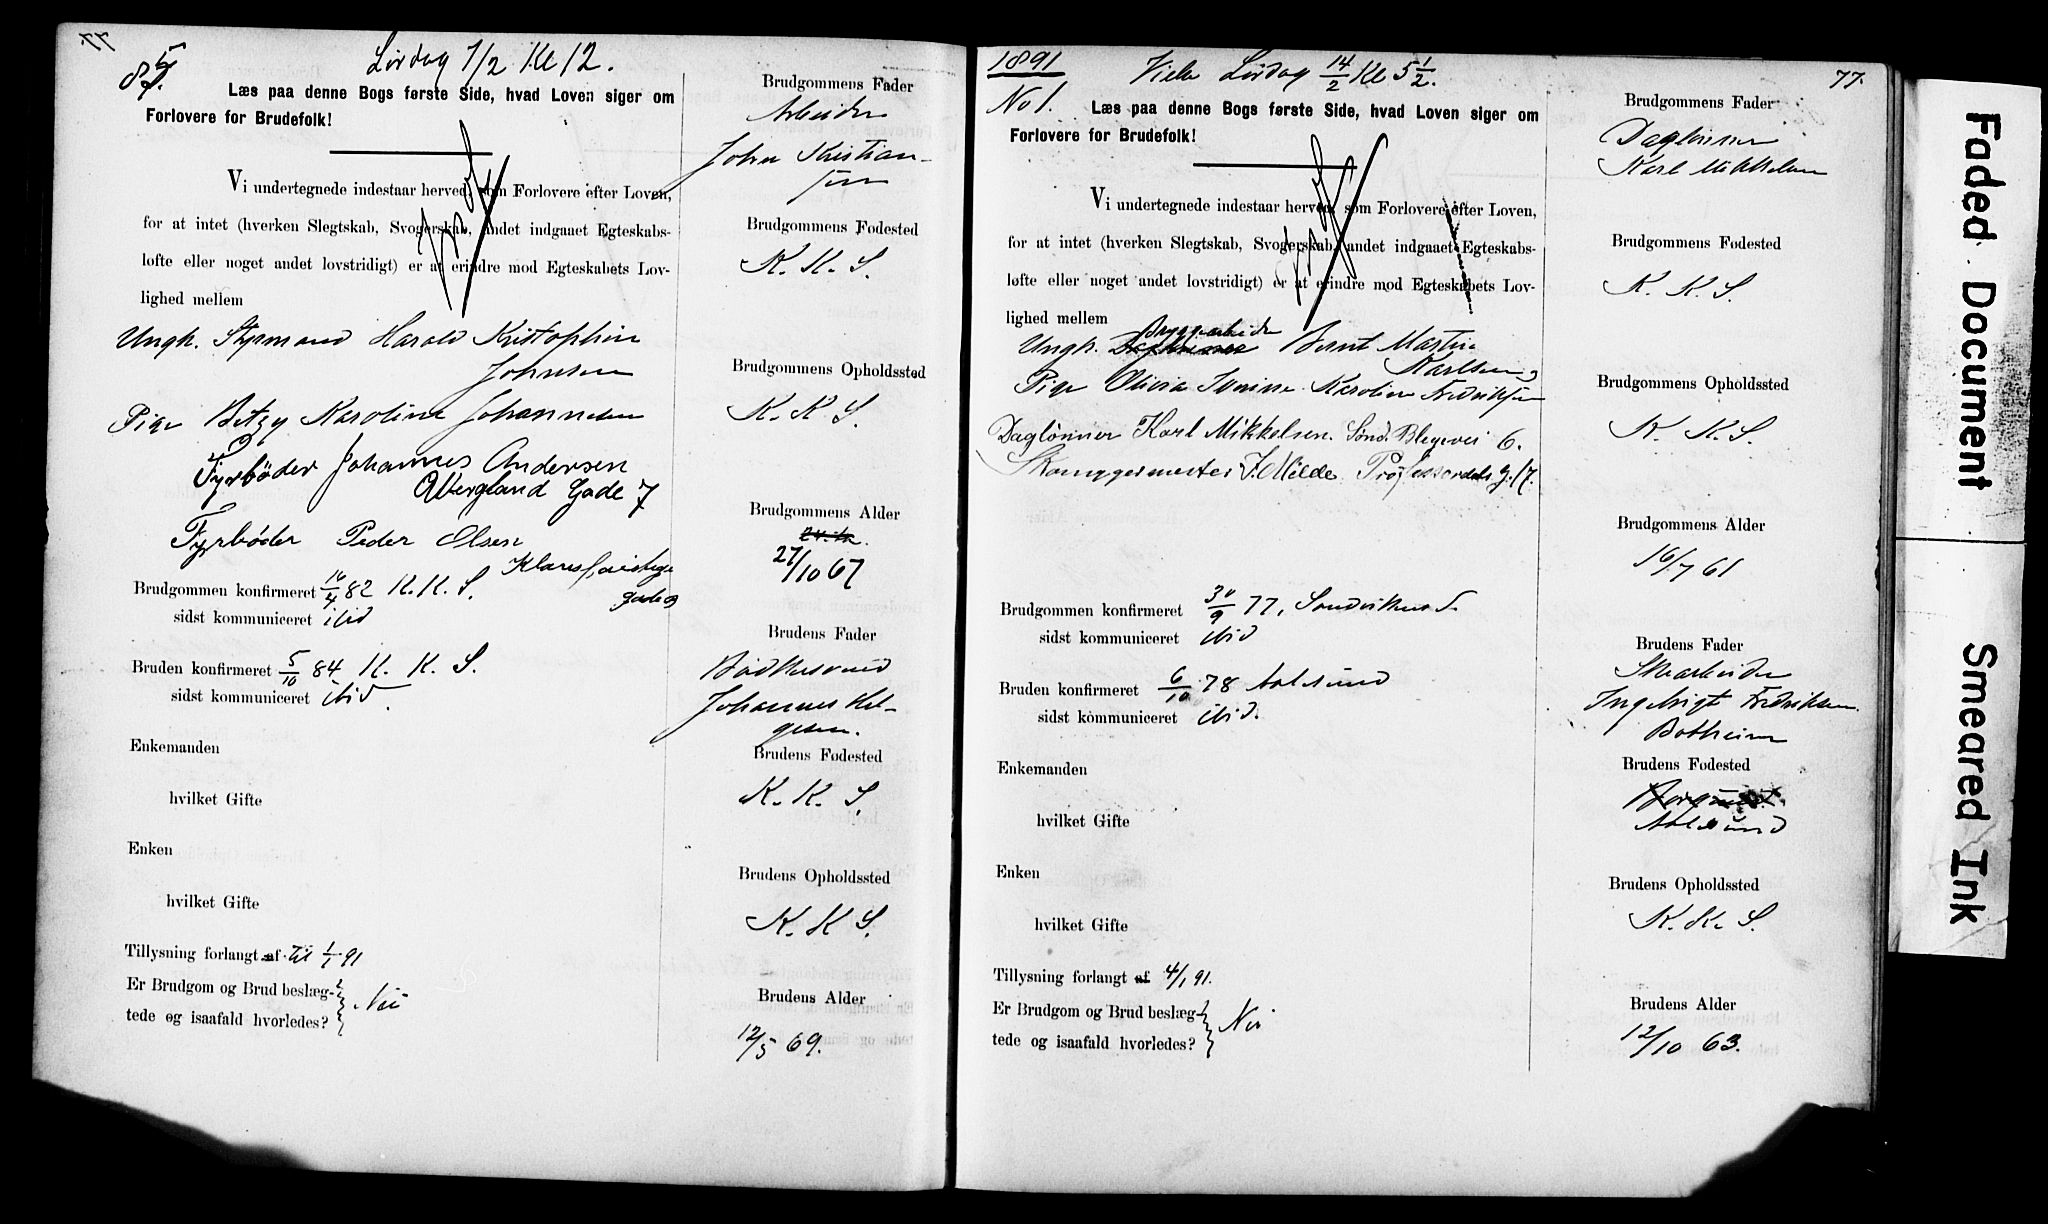 85.
Lørdag 7/2 Kl 12.
Læs paa denne Bogs første Side, hvad Loven siger om
Forlovere for Brudefolk!
Vi undertegnede indestaar herved, som Forlovere efter Loven,
for at intet (hverken Slegtskab, Svogerskab, andet indgaaet Egteskabs-
løfte eller noget andet lovstridigt) er at erindre mod Egteskabets Lov-
lighed mellem
Ungk. Styrmand Harald Kristophin
Johnsen
Pige Betzy Karoline Johannesen
Fyrbøder Johannes Andersen
Wergland Gade 7
Fyrbøder Peder Olsen
Brudgommen konfirmeret 16/4 82 K. K. S.
sidst kommuniceret ibid
Bruden konfirmeret 5/10 84 K. K. S.
sidst kommuniceret ibid.
Enkemanden
hvilket Gifte
Enken
hvilket Gifte
Tillysning forlangt af til 1/1 91
Er Brudgom og Brud beslæg-
tede og isaafald hvorledes? Nei
Brudgommens Fader
Arbeider
John Kristian-
sen
Brudgommens Fødested
K. K. S.
Brudgommens Opholdssted
K. K. S.
Brudgommens Alder
27/10 67
Brudens Fader
Johannes Hel-
gesen.
Brudens Fødested
K. K. S.
Brudens Opholdssted
K. K. S.
Brudens Alder
12/5 69.
1891
No 1.
Vielse Lørdag 14/2 Kl 5 1/2.
77.
Læs paa denne Bogs første Side, hvad Loven siger om
Forlovere for Brudefolk!
Vi undertegnede indestaar herved som Forlovere efter Loven,
for at intet (hverken Slegtskab, Svogerskab, andet indgaaet Egteskabs-
løfte eller noget andet lovstridigt) er at erindre mod Egteskabets Lov-
lighed mellem
Bryggearbeider
Ungk. Daglønner Bernt Martin
Karlsen og
Pige Olivia Karoline Fredriksen
Daglønner Karl Mikkelsen. Sønd. Blegevei 6.
J. Milde. 17.
Brudgommen konfirmeret 30/9 77, Sandvikens S.
sidst kommuniceret ibid
Bruden konfirmeret 6/10 78 Aalesund
sidst kommuniceret ibid.
Enkemanden
hvilket Gifte
Enken
hvilket Gifte
Tillysning forlangt af 4/1 91.
Er Brudgom og Brud beslæg-
tede og isaafald hvorledes? Nei
Brudgommens Fader
Daglønner
Karl Mikkelsen
Brudgommens Fødested
K. K. S.
Brudgommens Opholdssted
K. K. S.
Brudgommens Alder
16/7 61
Brudens Fader
Ingebrigt Fredriksen
Botheim
Brudens Fødested
Borgund
Aalesund
Brudens Opholdssted
K. K. S.
Brudens Alder
12/10 63.
Faded Document
Smeared Ink